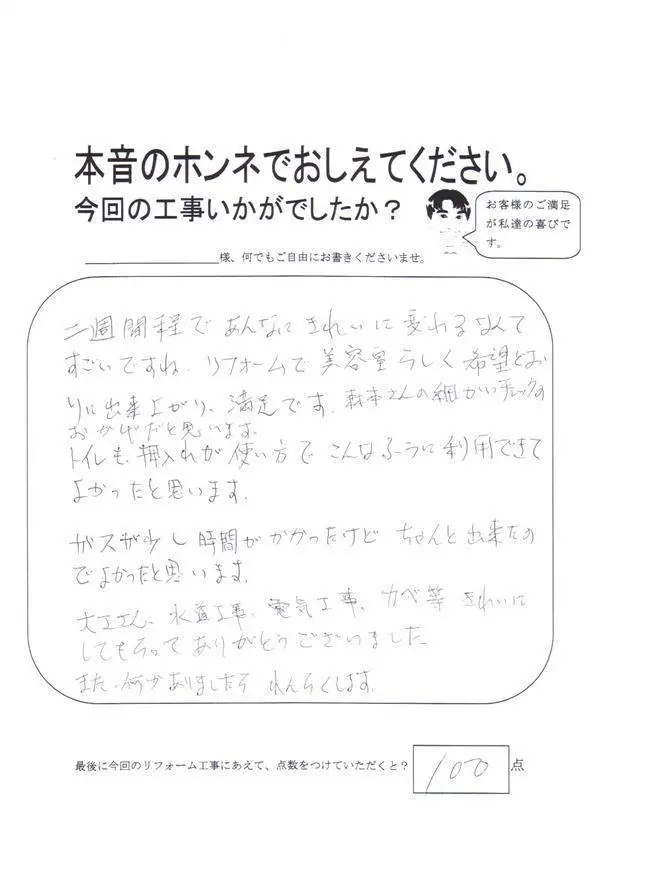 本音のホンネでおしえてください。
今回の工事いかがでしたか？
お客様のご満足
が私達の喜びで
す。
様、何でもご自由にお書きくださいませ。
二週間程であんなにきれいに変わるなんて
すごいですね。リフォームで美容室らしく希望どお
りに出来上がり、満足です。森本さんの細かいチェックの
おかげだと思います。
トイレも、押入れが使い方でこんなふうに利用できて
よかったと思います。
ガスが少し時間がかかったけど ちゃんと出来たの
でよかったと思います。
大工さん、水道工事、電気工事、カベ等きれいに
してもらってありがとうございました。
また、何かありましたられんらくします。
最後に今回のリフォーム工事にあえて、点数をつけていただくと？ 100 点